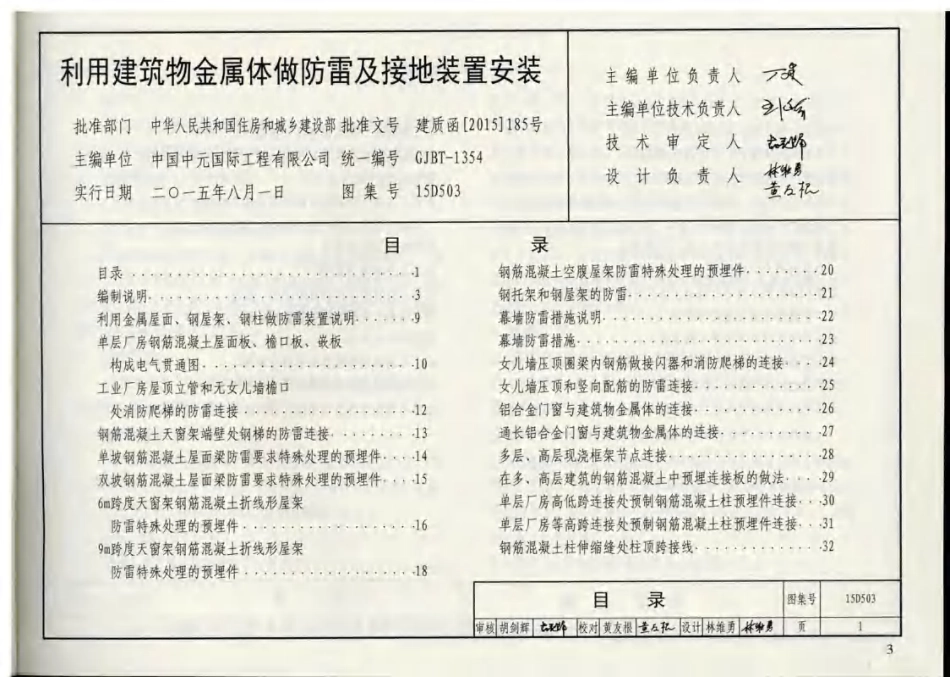 利用建筑物金属体做防雷及接地装置安装
批准部门 中华人民共和国住房和城乡建设部 批准文号 建质函[2015]185号
主编单位 中国中元国际工程有限公司 统一编号 GJBT-1354
实行日期 二〇一五年八月一日 图集号 15D503
主编单位负责人
主编单位技术负责人
技术审定人
设计负责人 林维勇
黄友根
目录
目录 1
编制说明 3
利用金属屋面、钢屋架、钢柱做防雷装置说明 9
单层厂房钢筋混凝土屋面板、檐口板、嵌板
构成电气贯通图 10
工业厂房屋顶立管和无女儿墙檐口
处消防爬梯的防雷连接 12
钢筋混凝土天窗架端壁处钢梯的防雷连接 13
单坡钢筋混凝土屋面梁防雷要求特殊处理的预埋件 14
双坡钢筋混凝土屋面梁防雷要求特殊处理的预埋件 15
6m跨度天窗架钢筋混凝土折线形屋架
防雷特殊处理的预埋件 16
9m跨度天窗架钢筋混凝土折线形屋架
防雷特殊处理的预埋件 18
钢筋混凝土空腹屋架防雷特殊处理的预埋件 20
钢托架和钢屋架的防雷 21
幕墙防雷措施说明 22
幕墙防雷措施 23
女儿墙压顶圈梁内钢筋做接闪器和消防爬梯的连接 24
女儿墙压顶和竖向配筋的防雷连接 25
铝合金门窗与建筑物金属体的连接 26
通长铝合金门窗与建筑物金属体的连接 27
多层、高层现浇框架节点连接 28
在多、高层建筑的钢筋混凝土中预埋连接板的做法 29
单层厂房高低跨连接处预制钢筋混凝土柱预埋件连接 30
单层厂房等高跨连接处预制钢筋混凝土柱预埋件连接 31
钢筋混凝土柱伸缩缝处柱顶跨接线 32
目录 图集号 15D503
审核 胡剑辉 校对 黄友根 黄友根 设计 林维勇 林维勇 页 1
3